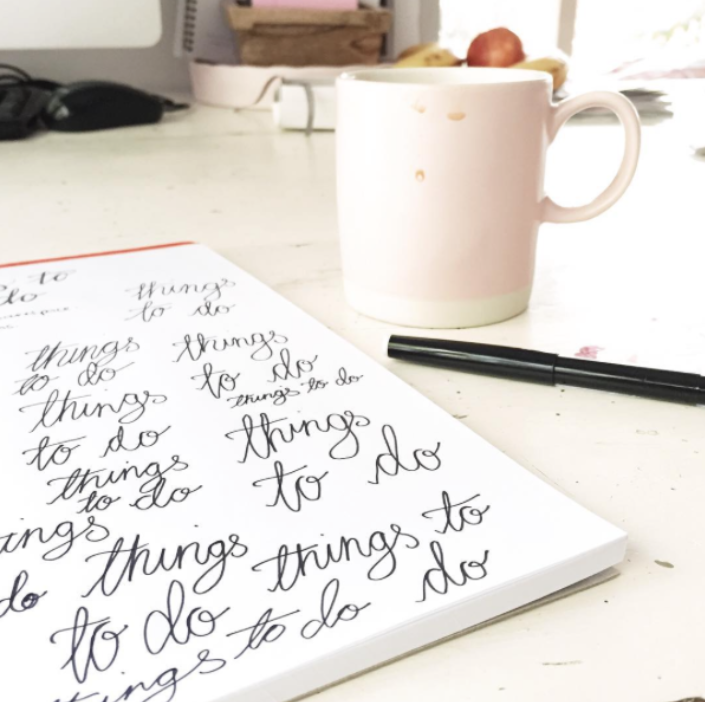 to
do
things
to do
things
to do
things
to do
things to do
things
to do
things
to do
things
to do
ings
do
things
to do
things to
do
things to do